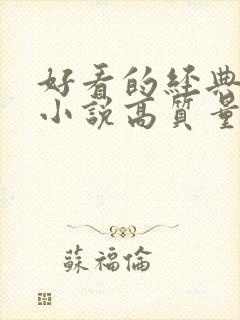 好看的经典
小說高質量
蘇福倫